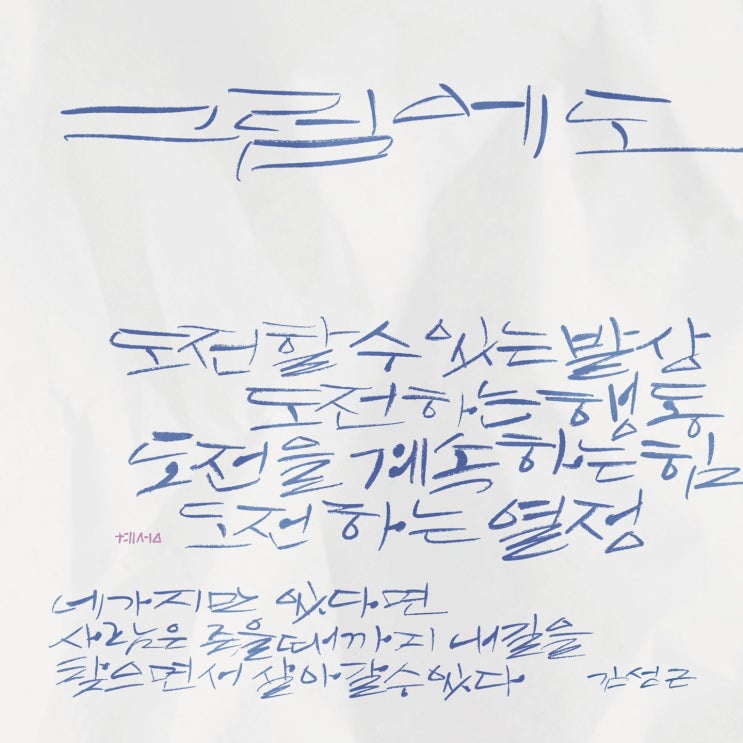 그럼에도
도전할 수 있는 발상
도전하는 행동
도전을 계속하는 힘
도전하는 열정
네가지만 있다면
사람은 죽을때까지 내길을
찾으면서 살아갈 수 있다
김성근